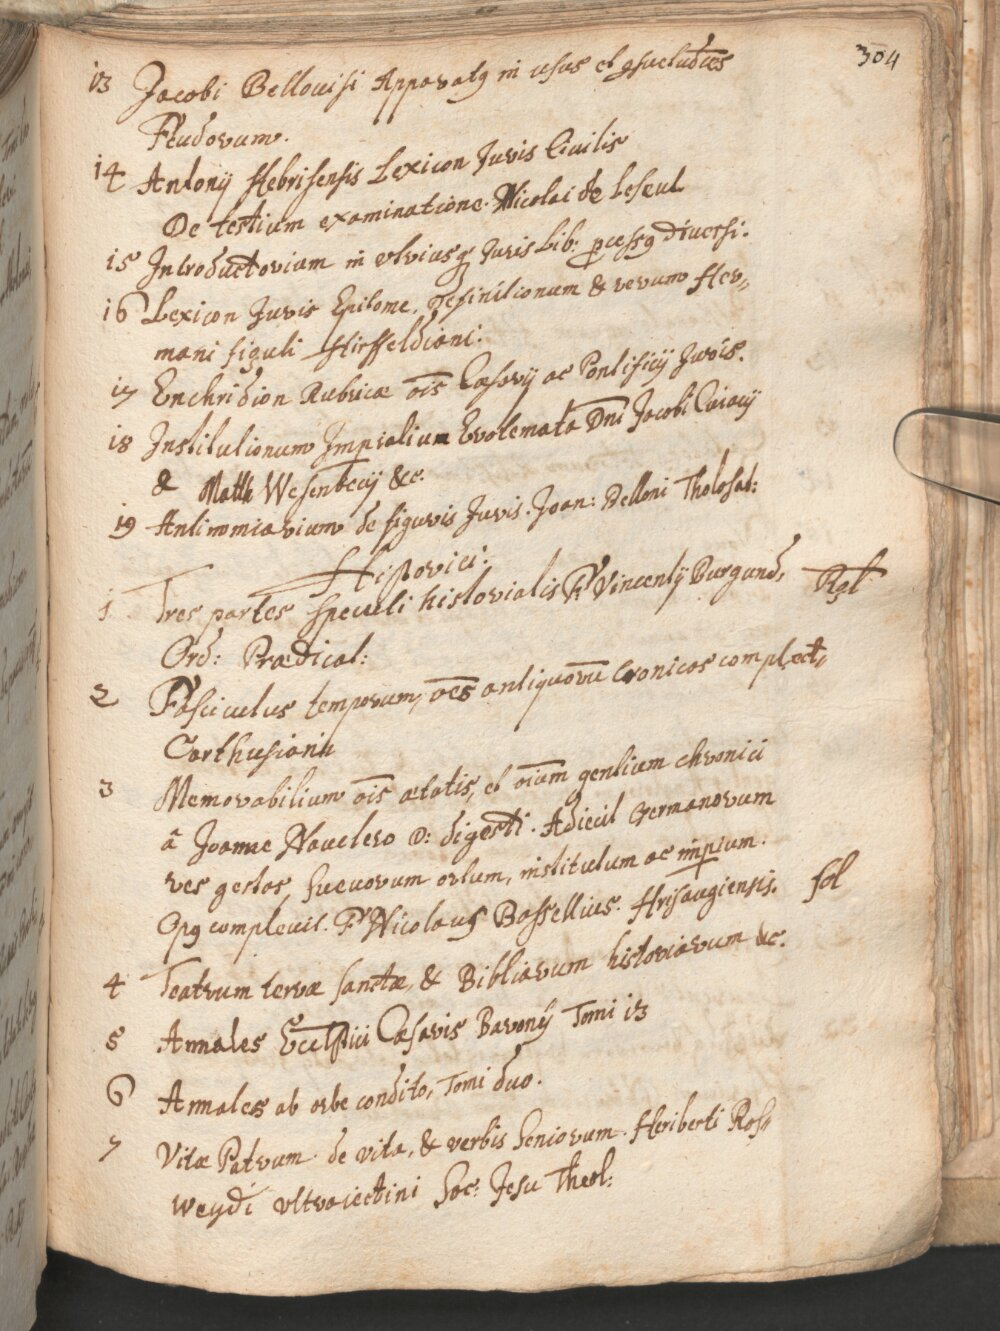 304
13 Jacobi Bellouisi Apparatq in usus et qsuetudies
Feudorum.
14 Antonij Nebrisensis Lexicon Juris Ciuilis
De testium examinatione. Nicolai de Leseul
15 Introductorium in vtriusq Juris Lib: pcessq Diuersi.
16 Lexicon Juris Epitome, Definitionum & rerum Her,,
mani figuli Hirsfeldiani.
17 Enchridion Rubricæ oīs Cæsarij ac Pontificij Juris.
18 Institutionum Impialium Erotemata Dni Jacobi Cuiacij
& Matth Wesenbecij &c.
19 Antinomiarium de figuris Juris. Joan: Delloni Tholosat:
Historici:
1 Tres partes speculi historialis Fr Vincentij Burgund, Rgl
Ord: Prædicat:
2 Fasciculus temporum, oēs antiquorū Cronicas complect,,
Carthusianū
3 Memorabilium oīs ætatis, et oium gentium chronici
â Joanne Nauclero D: digesti. Adiecit Germanorum
res gestas, sueuorum ortum, institutum ac impium.
Opq compleuit. Fr Nicolaus Bassellius. Hirsaugiensis. fol
4 Teatrum terræ sanctæ, & Bibliarum historiarum &c.
5 Annales Ecclstici Cæsaris Baronij Tomi 13
6 Annales ab orbe condito, Tomi duo.
7 Vitæ Patrum de vita, & verbis Seniorum. Heriberti Ros,,
weydi Vltraiectini Soc: Jesu Theol: